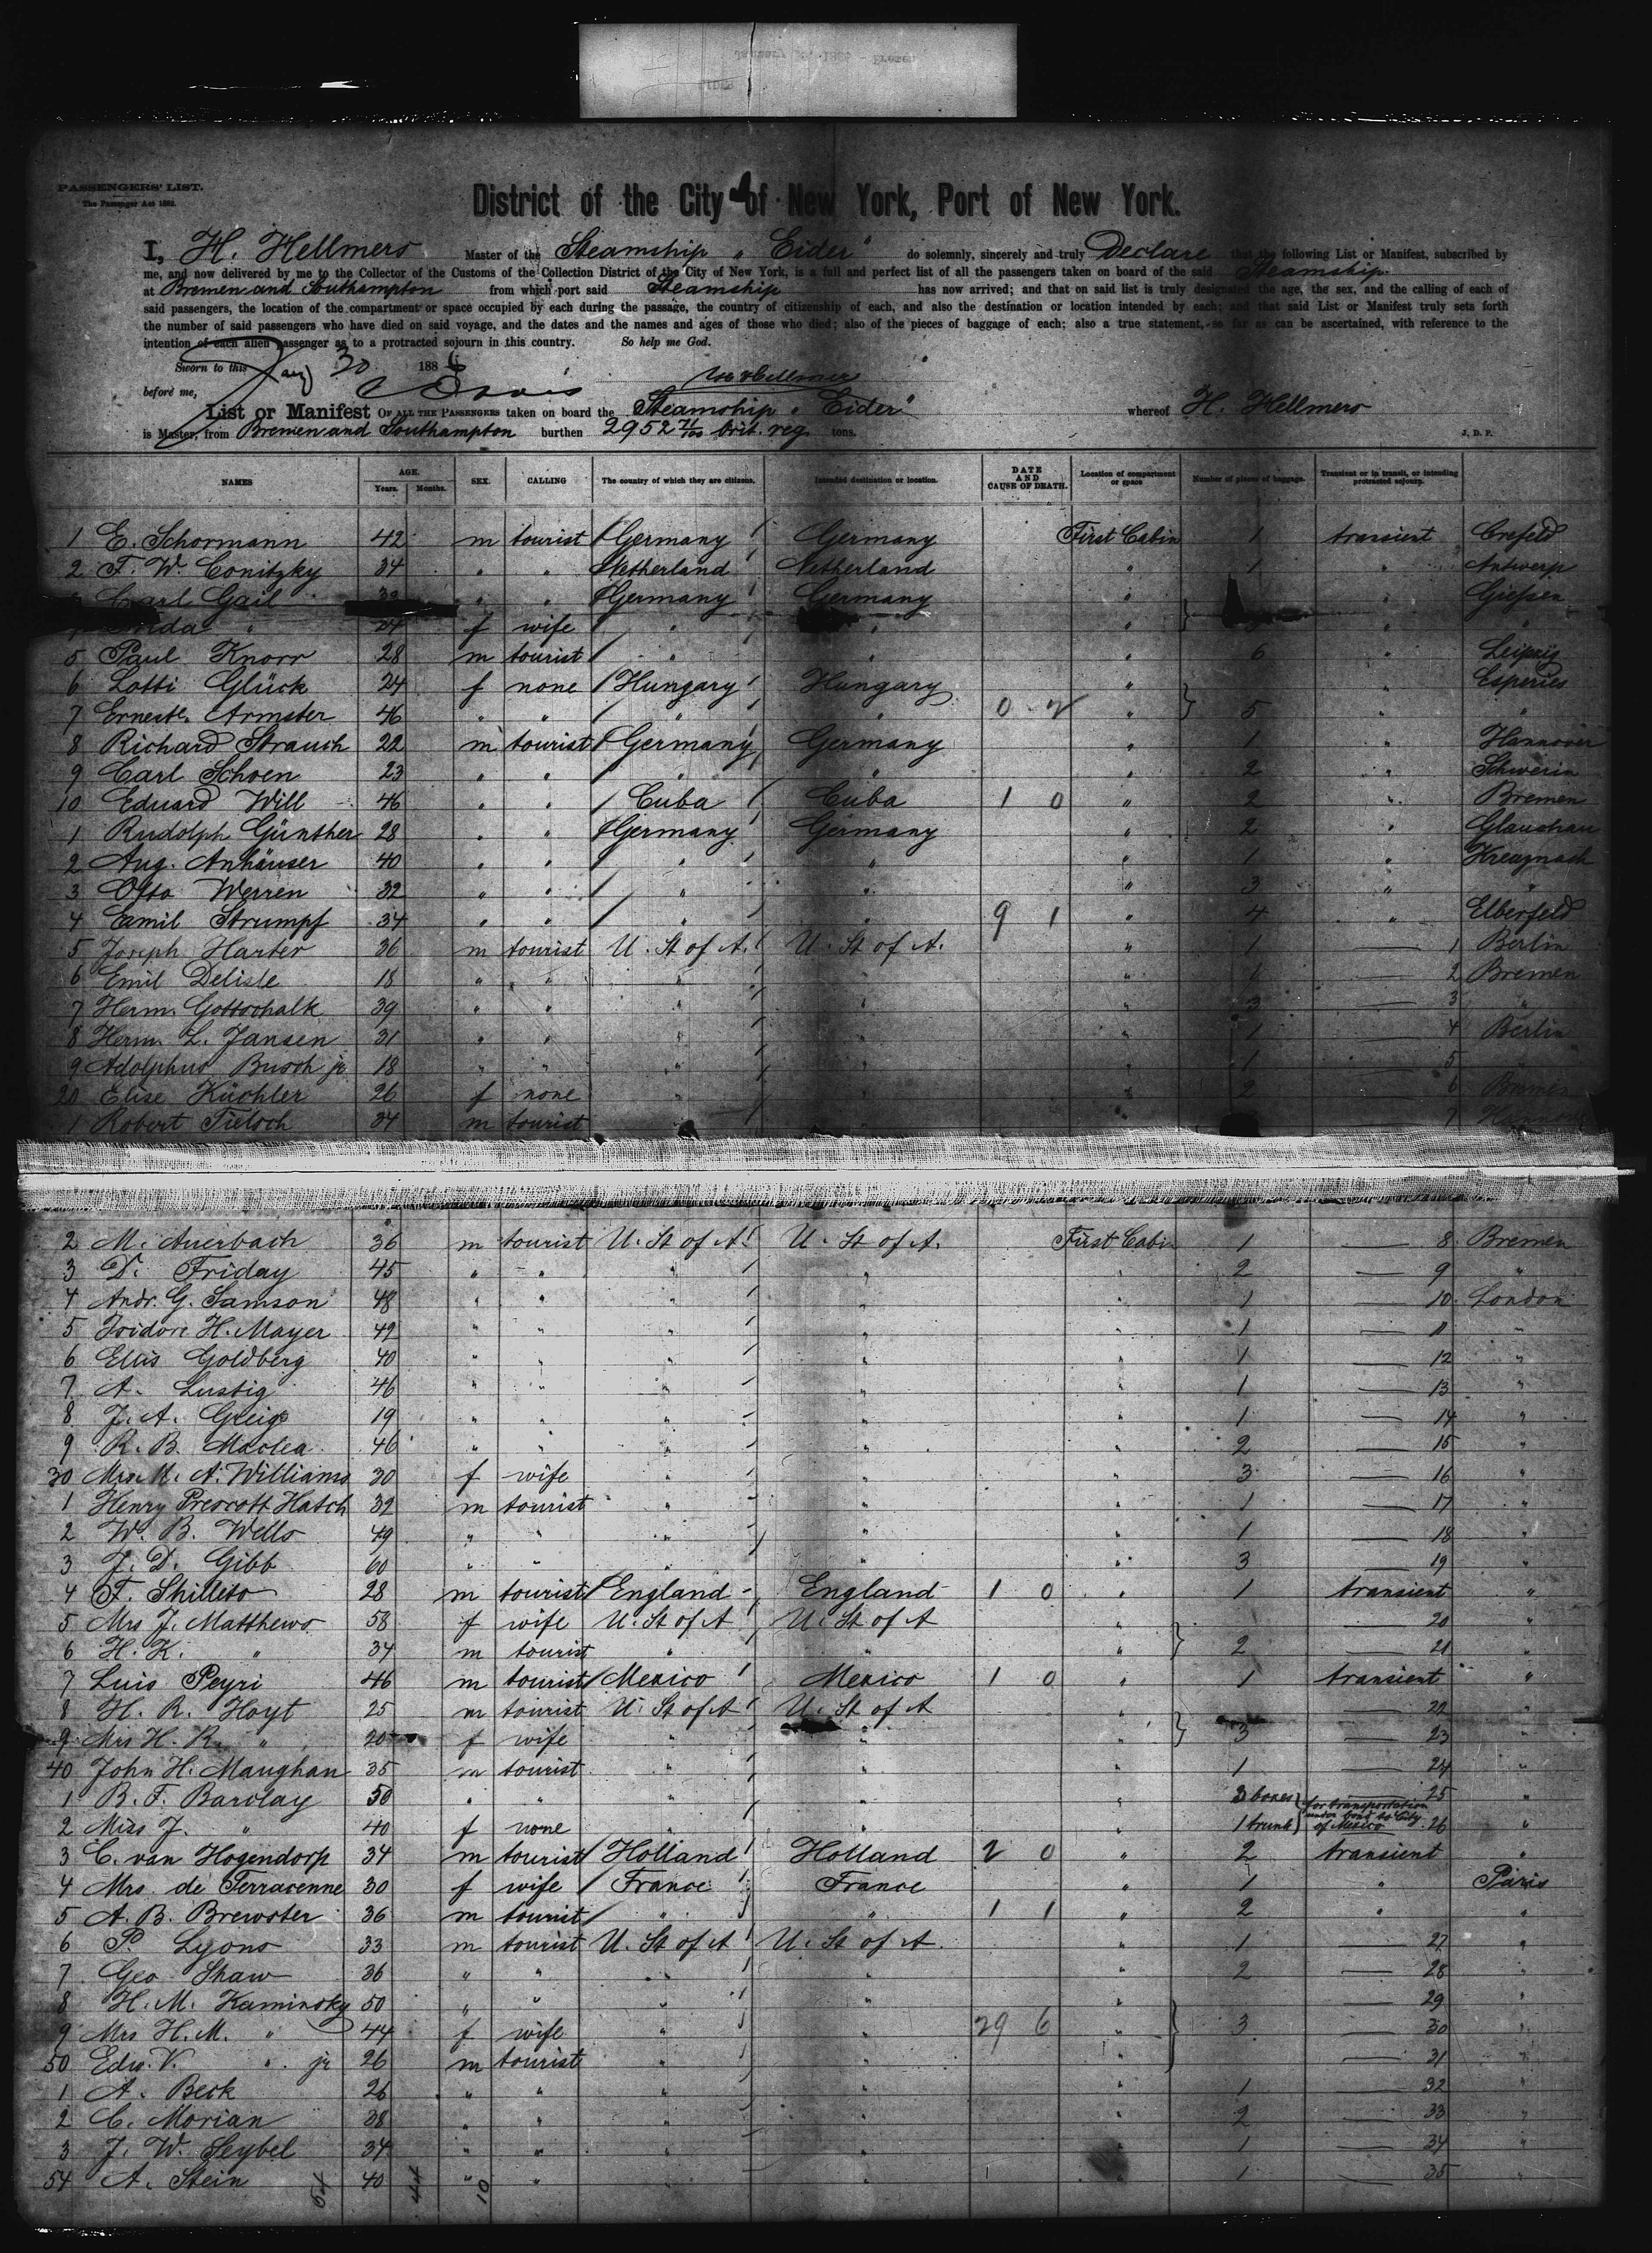 PASSENGERS' LIST.
The Passenger Act 1882.
District of the City of New York, Port of New York.
I, H. Hellmers Master of the Steamship „ Eider" do solemnly, sincerely and truly Declare that the following List or Manifest, subscribed by
me, and now delivered by me to the Collector of the Customs of the Collection District of the City of New York, is a full and perfect list of all the passengers taken on board of the said Steamship
at Bremen and Southampton from which port said Steamship has now arrived; and that on said list is truly designated the age, the sex, and the calling of each of
said passengers, the location of the compartment or space occupied by each during the passage, the country of citizenship of each, and also the destination or location intended by each; and that said List or Manifest truly sets forth
the number of said passengers who have died on said voyage, and the dates and the names and ages of those who died; also of the pieces of baggage of each; also a true statement, so far as can be ascertained, with reference to the
intention of each alien passenger as to a protracted sojourn in this country. So help me God.
Sworn to this Jany 30 1886
before me,
List or Manifest OF ALL THE PASSENGERS taken on board the Steamship „ Eider" whereof H. Hellmers
is Master, from Bremen and Southampton burthen 2952 71/100 brit. reg. tons. J. D. P.
NAMES AGE. Years. Months. SEX. CALLING The country of which they are citizens. Intended destination or location. DATE AND CAUSE OF DEATH. Location of compartment or space Number of pieces of baggage. Transient or in transit, or intending protracted sojourn.
1 E. Schormann 42 m tourist Germany Germany First Cabin 1 transient Crefeld
2 F. W. Conitzky 34 " " Netherland Netherland " 1 " Antwerp
Carl Gail " " Germany Germany " " Giessen
" 24 f wife " " " " "
5 Paul Knorr 28 m tourist " " " 6 " Leipzig
6 Lotti Glück 24 f none Hungary Hungary " " Esperies
7 Erneste. Armster 46 " " " " 0 2 " 5 " "
8 Richard Strauch 22 m tourist Germany Germany " 1 " Hannover
9 Carl Schoen 23 " " " " " 2 " Schwerin
10 Eduard Will 46 " " Cuba Cuba 1 0 " 2 " Bremen
1 Rudolph Günther 28 " " Germany Germany " 2 " Glauchau
2 Aug. Anhäuser 40 " " " " " 1 " Kreuznach
3 Otto Werren 32 " " " " " 3 " "
4 Emil Strumpf 34 " " " " 9 1 " 4 " Elberfeld
5 Joseph Harter 36 m tourist U. St of A. U. St of A. " 1 — 1 Berlin
6 Emil Delisle 18 " " " " " 1 — 2 Bremen
7 Herm. Gottschalk 39 " " " " " 3 — 3 "
8 Herm. L. Jansen 31 " " " " " 1 — 4 Berlin
9 Adolphus Busch jr 18 " " " " " 1 — 5 "
20 Elise Küchler 26 f none " " " 2 6 Bremen
1 Robert Tietsch 34 m tourist 7
2 M. Auerbach 36 m tourist U. St of A. U. St of A. First Cabin 1 — 8 Bremen
3 D. Friday 45 " " " " " 2 — 9 "
4 Andr. G. Samson 48 " " " " " 1 — 10 London
5 Isidore H. Mayer 42 " " " " " 1 — 11 "
6 Ellis Goldberg 40 " " " " " 1 — 12 "
7 A. Lustig 46 " " " " " 1 — 13 "
8 J. A. Greig 19 " " " " " 1 — 14 "
9 R. B. Maclea 46 " " " " " 2 — 15 "
30 Mrs. M. A. Williams 30 f wife " " " 3 — 16 "
1 Henry Prescott Hatch 32 m tourist " " " 1 — 17 "
2 W. B. Wells 49 " " " " " 1 — 18 "
3 J. D. Gibb 60 " " " " " 3 — 19 "
4 F. Shilleto 28 m tourist England England 1 0 " 1 transient "
5 Mrs J. Matthews 58 f wife U. St of A U. St of A " — 20 "
6 H. K. " 34 m tourist " " " 2 — 21 "
7 Luis Peyri 46 m tourist Mexico Mexico 1 0 " 1 transient "
8 H. R. Hoyt 25 m tourist U. St of A U. St of A " — 22 "
9 Mrs H. R. " 20 f wife " " " 3 — 23 "
40 John H. Maughan 35 m tourist " " " 1 — 24 "
1 B. F. Barclay 50 " " " " " 3 boxes for transportation — 25 "
2 Miss J. " 40 f none " " " 1 trunk under bond to City of Mexico 26 "
3 C. van Hogendorp 34 m tourist Holland Holland 2 0 " 2 transient "
4 Mrs. de Terracenne 30 f wife France France " 1 " Paris
5 A. B. Brewster 36 m tourist " " 1 1 " 2 " "
6 P. Lyons 33 m tourist U. St of A U. St of A. " 1 — 27 "
7 Geo Shaw 36 " " " " " 2 — 28 "
8 H. M. Kaminsky 50 " " " " " — 29 "
9 Mrs H. M. " 44 f wife " " 29 6 " 3 — 30 "
50 Edw. V. " jr 26 m tourist " " " — 31 "
1 A. Beck 26 " " " " " 1 — 32 "
2 C. Morian 38 " " " " " 2 — 33 "
3 J. W. Seybel 34 " " " " " 1 — 34 "
54 A. Stein 40 " " " " " 1 — 35 "
54 44 10